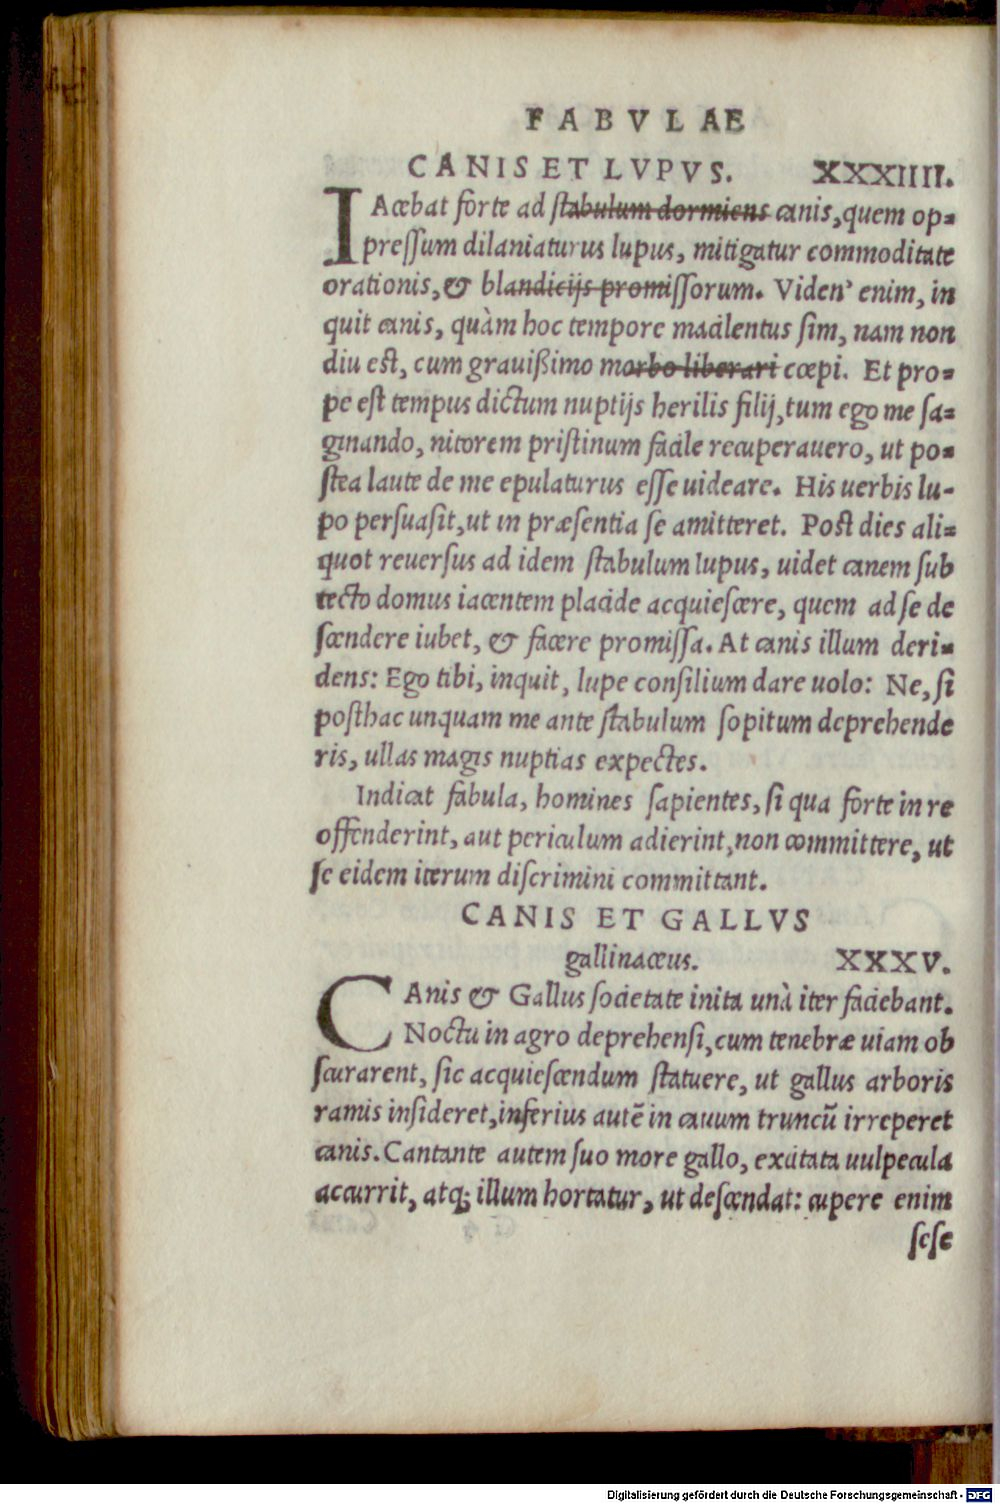 FABVLAE
CANIS ET LVPVS. XXXIIII.
IAcebat forte ad stabulum dormiens canis, quem op=
pressum dilaniaturus lupus, mitigatur commoditate
orationis, & blandicijs promissorum. Viden' enim, in
quit canis, quàm hoc tempore macilentus sim, nam non
diu est, cum grauißimo morbo liberari cœpi. Et pro=
pe est tempus dictum nuptijs herilis filij, tum ego me sa=
ginando, nitorem pristinum facile recuperauero, ut po=
stea laute de me epulaturus esse uideare. His uerbis lu-
po persuasit, ut in præsentia se amitteret. Post dies ali=
quot reuersus ad idem stabulum lupus, uidet canem sub
tecto domus iacentem placide acquiescere, quem ad se de
scendere iubet, & facere promissa. At canis illum deri=
dens: Ego tibi, inquit, lupe consilium dare uolo: Ne, si
posthac unquam me ante stabulum sopitum deprehende
ris, ullas magis nuptias expectes.
Indicat fabula, homines sapientes, si qua forte in re
offenderint, aut periculum adierint, non committere, ut
se eidem iterum discrimini committant.
CANIS ET GALLVS
gallinaceus. XXXV.
CAnis & Gallus societate inita unà iter faciebant.
Noctu in agro deprehensi, cum tenebræ uiam ob
scurarent, sic acquiescendum statuere, ut gallus arboris
ramis insideret, inferius autē in cauum truncū irreperet
canis. Cantante autem suo more gallo, excitata uulpecula
accurrit, atq; illum hortatur, ut descendat: cupere enim
sese
Digitalisierung gefördert durch die Deutsche Forschungsgemeinschaft - DFG